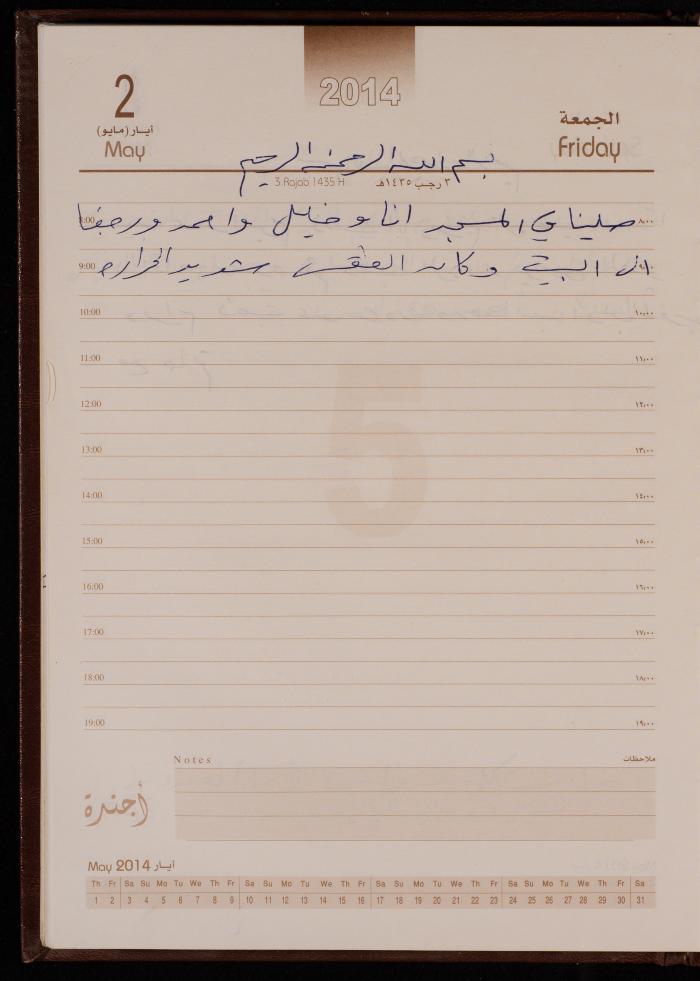 2014
2
أيار (مايو)
May
الجمعة
Friday
بسم الله الرحمن الرحيم
3 Rajab 1435 H
٣ رجب ١٤٣٥هـ
8:00 صلينا في المسجد انا و خليل واحمد ورجعنا ٨،٠٠
9:00 الى البيت وكان الطقس شديد الحراره ٩،٠٠
10:00 ١٠،٠٠
11:00 ١١،٠٠
12:00 ١٢،٠٠
13:00 ١٣،٠٠
14:00 ١٤،٠٠
15:00 ١٥،٠٠
16:00 ١٦،٠٠
17:00 ١٧،٠٠
18:00 ١٨،٠٠
19:00 ١٩،٠٠
5
Notes ملاحظات
أجندة
May 2014 أيار
Th Fr Sa Su Mo Tu We Th Fr Sa Su Mo Tu We Th Fr Sa Su Mo Tu We Th Fr Sa Su Mo Tu We Th Fr Sa
1 2 3 4 5 6 7 8 9 10 11 12 13 14 15 16 17 18 19 20 21 22 23 24 25 26 27 28 29 30 31